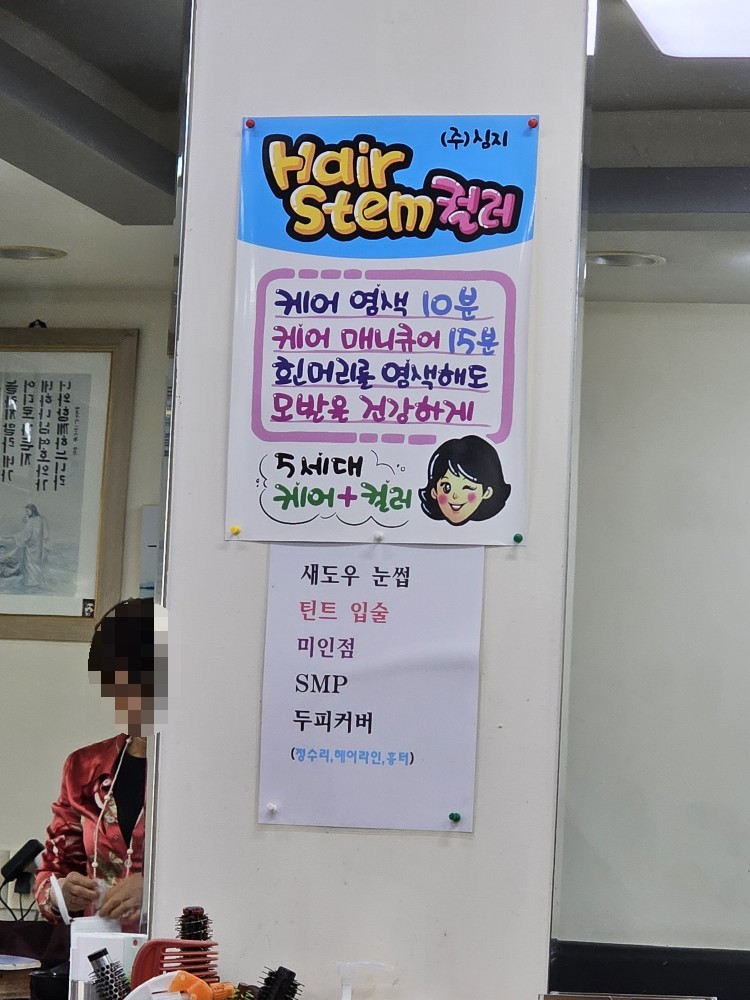 (주)심지
Hair
Stem컬러
케어 염색 10분
케어 매니큐어 15분
흰머리를 염색해도
모발은 건강하게
5세대
케어+컬러
섀도우 눈썹
틴트 입술
미인점
SMP
두피커버
(정수리,헤어라인,흉터)